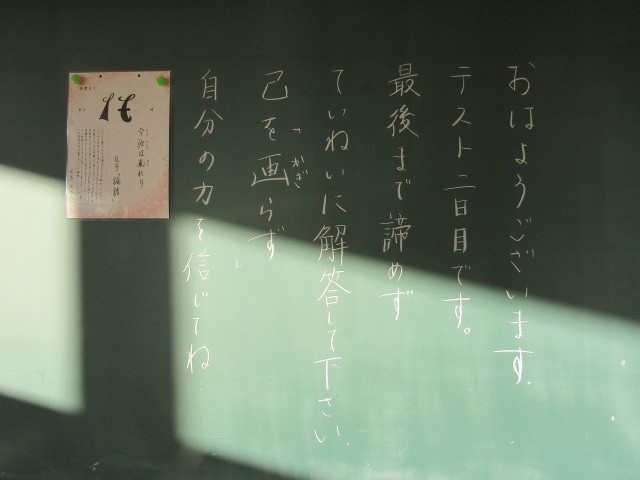 おはようございます。
テスト二日目です。
最後まで諦めず
ていねいに解答して下さい。
「己を画らず」
かぎ
自分の力を信じてね.
今汝は画れり
論語